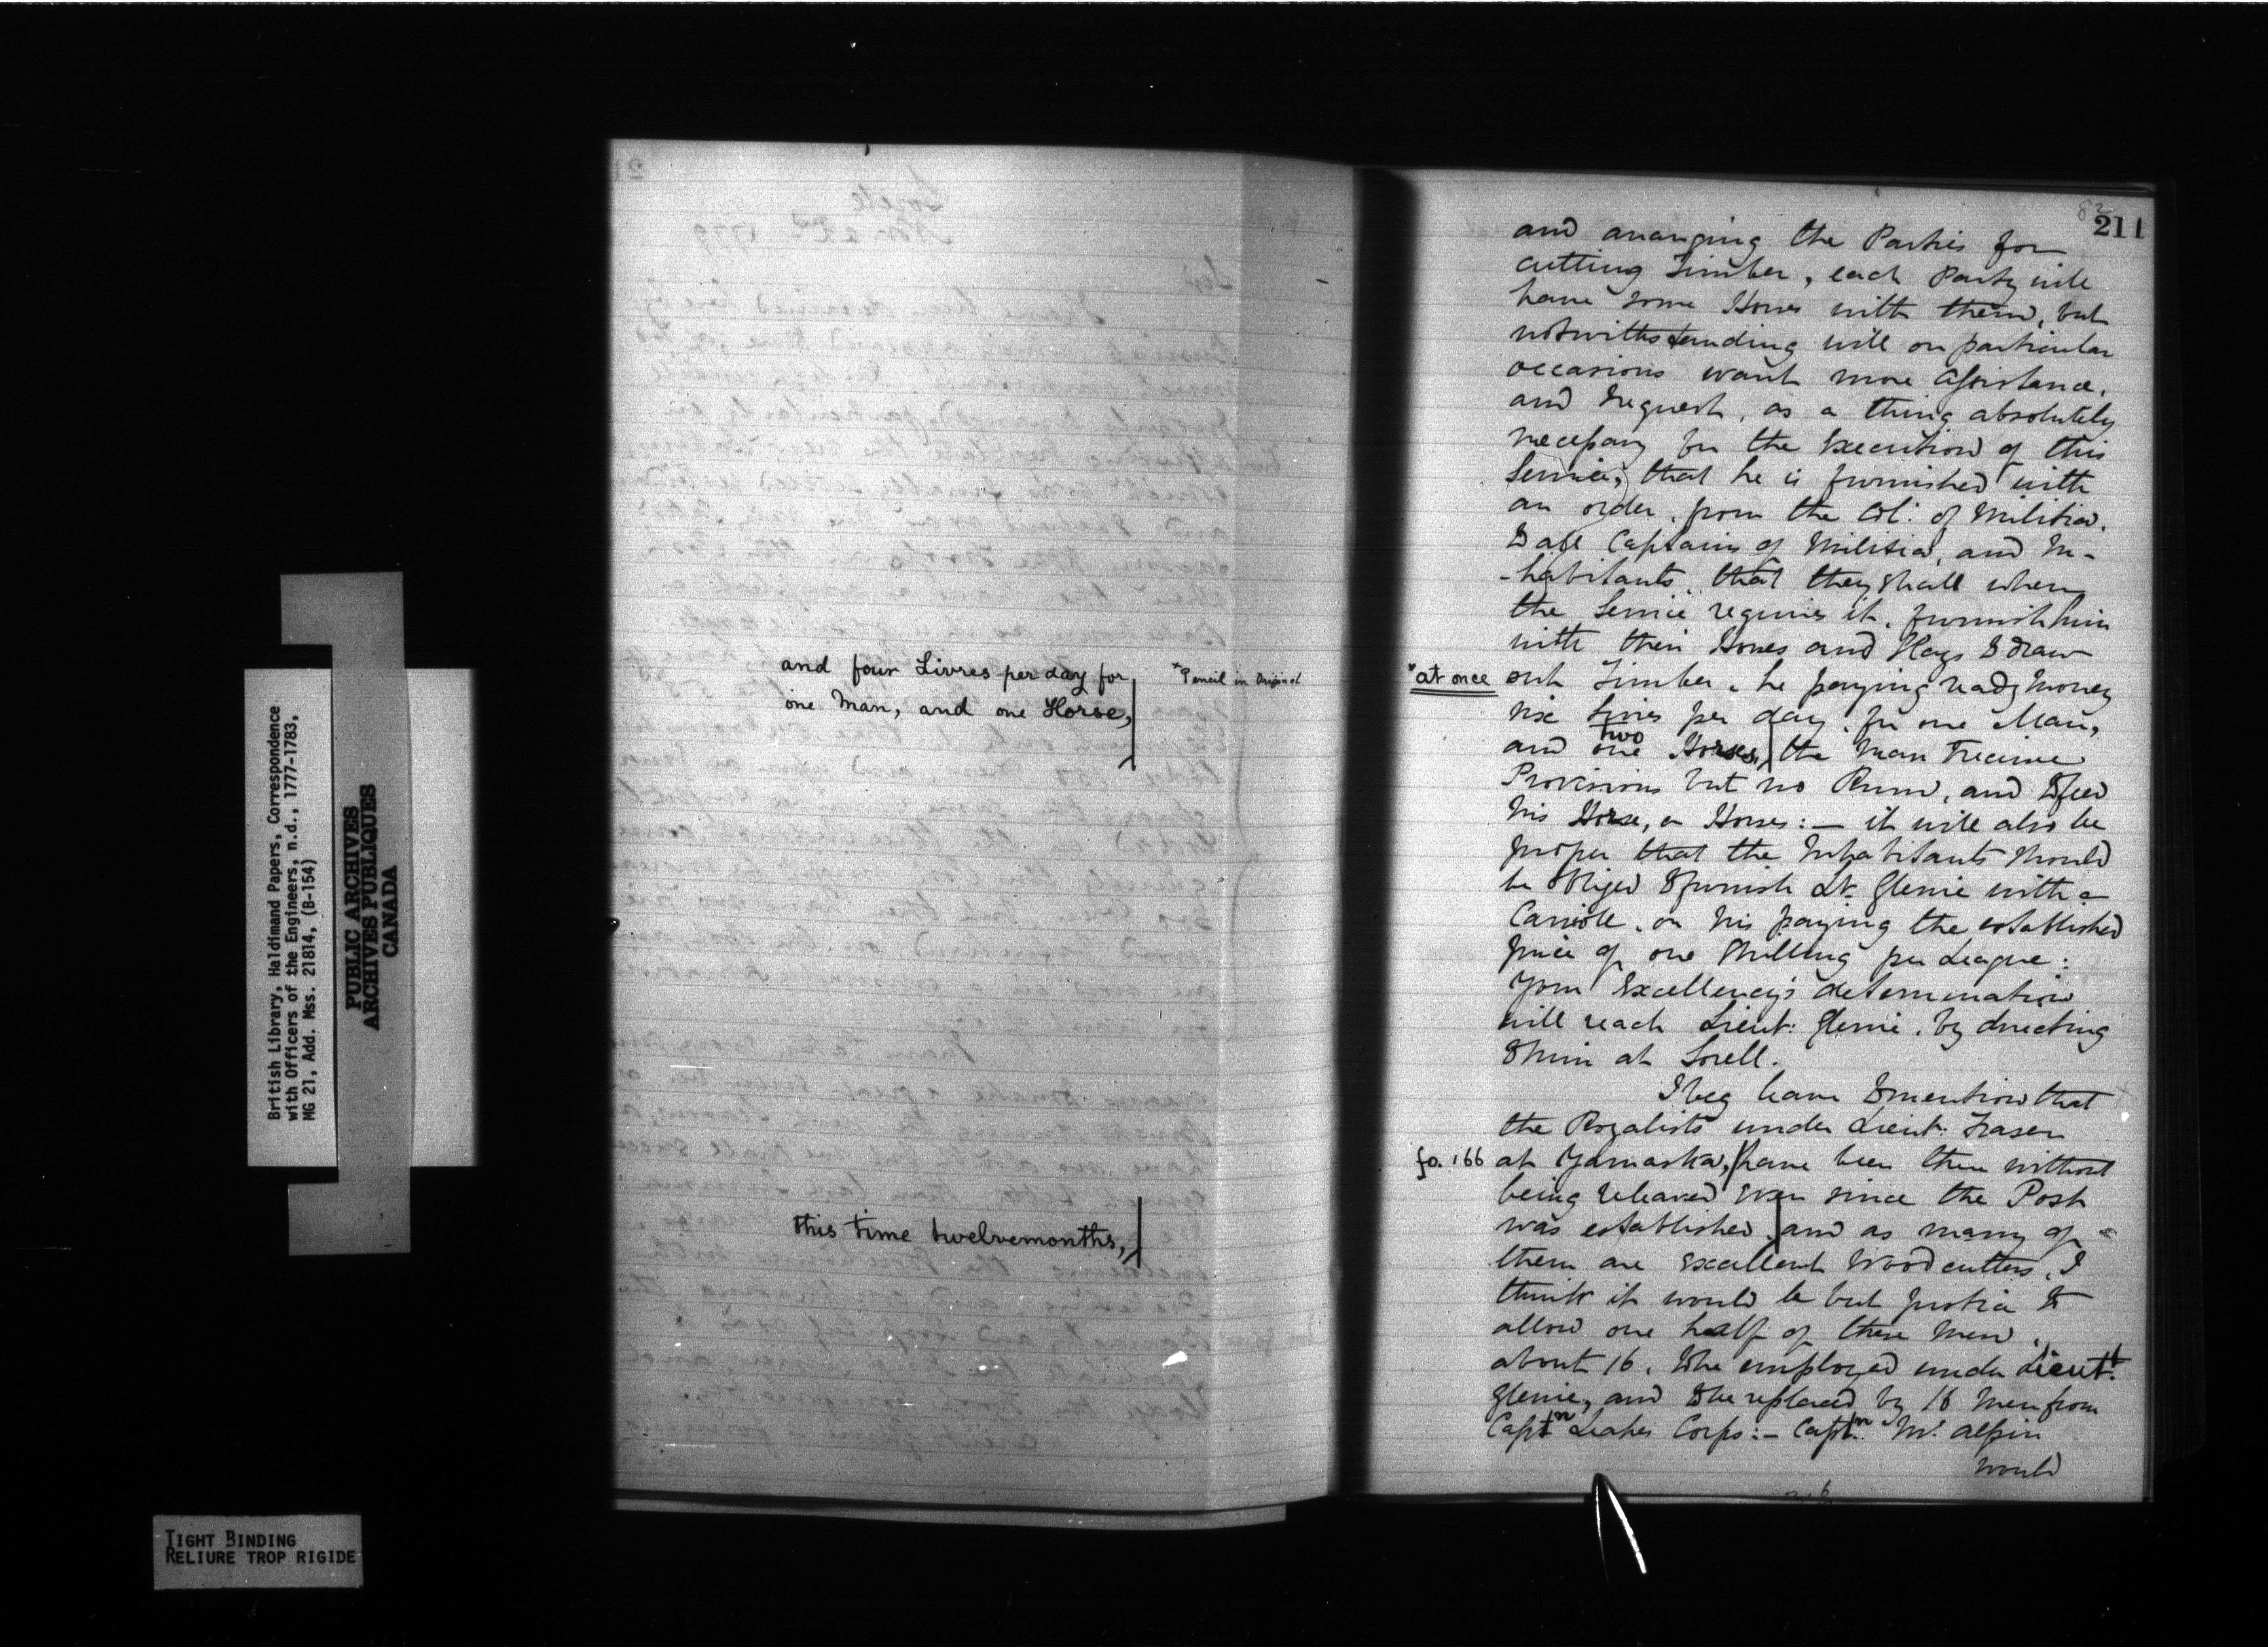 British Library, Haldimand Papers, Correspondence
with Officers of the Engineers, n.d., 1777-1783,
MG 21, Add. Mss. 21814, (B-154)
PUBLIC ARCHIVES
ARCHIVES PUBLIQUES
CANADA
TIGHT BINDING
RELIURE TROP RIGIDE
and four Livres per day for
one Man, and one Horse,
*Pencil in Original
this time twelvemonths,
82
211
and arranging the Parties for
cutting Timber, each Party will
have some Horses with them, but
notwithstanding will on particular
occasions want more assistance.
and request, as a thing absolutely
necessary for the Execution of this
Service, that he is furnished with
an order, from the Col: of Militia.
to all Captains of Militia, and In-
-habitants, that they shall when
the Service requires it, furnish him
with their Horses and Slays to draw
*at once out Timber, he paying ready money
six Livres per day, for one Man,
two
and one Horses, the Man to receive
Provisions but no Rum, and to feed
his Horse, or Horses:— it will also be
proper that the Inhabitants should
be obliged to furnish Lt. Glenie with a
Carriole, on his paying the established
price of one Shilling per League:
Your Excellency's determination
will reach Lieut: Glenie, by directing
to him at Sorell.
I beg leave to mention that
the Royalists under Lieut: Fraser
fo. 166 at Yamaska, have been there without
being releaved ever since the Post
was established, and as many of
them are Excellent Wood cutters, I
think it would be but Justice to
allow one half of these Men,
about 16, to be employed under Lieutt.
Glenie, and to be replaced by 16 Men from
Captn Leakes Corps:— Captn. Mc. alpin
would